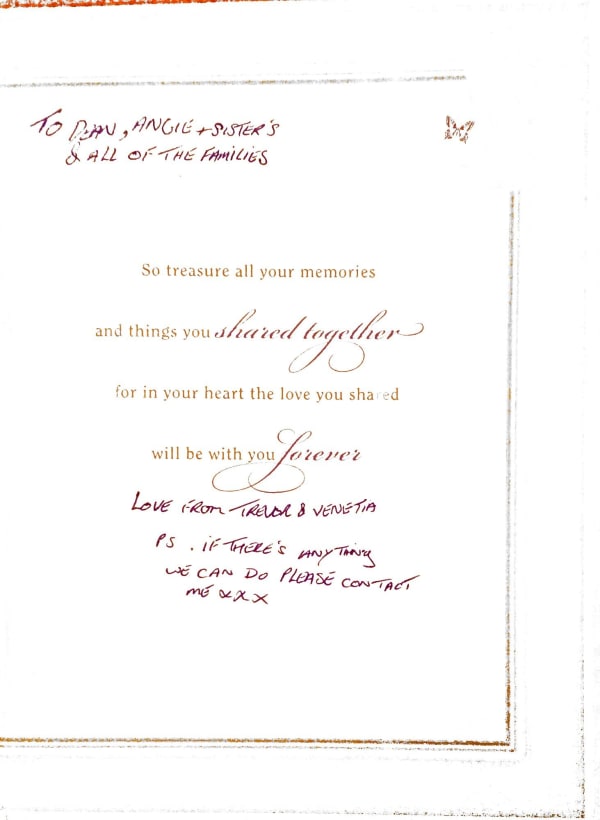 TO DEAN, ANGIE + SISTER'S
& ALL OF THE FAMILIES
So treasure all your memories
and things you shared together
for in your heart the love you shared
will be with you forever
LOVE FROM TREVOR & VENETIA
PS . IF THERE'S ANYTHING
WE CAN DO PLEASE CONTACT
ME xxxx